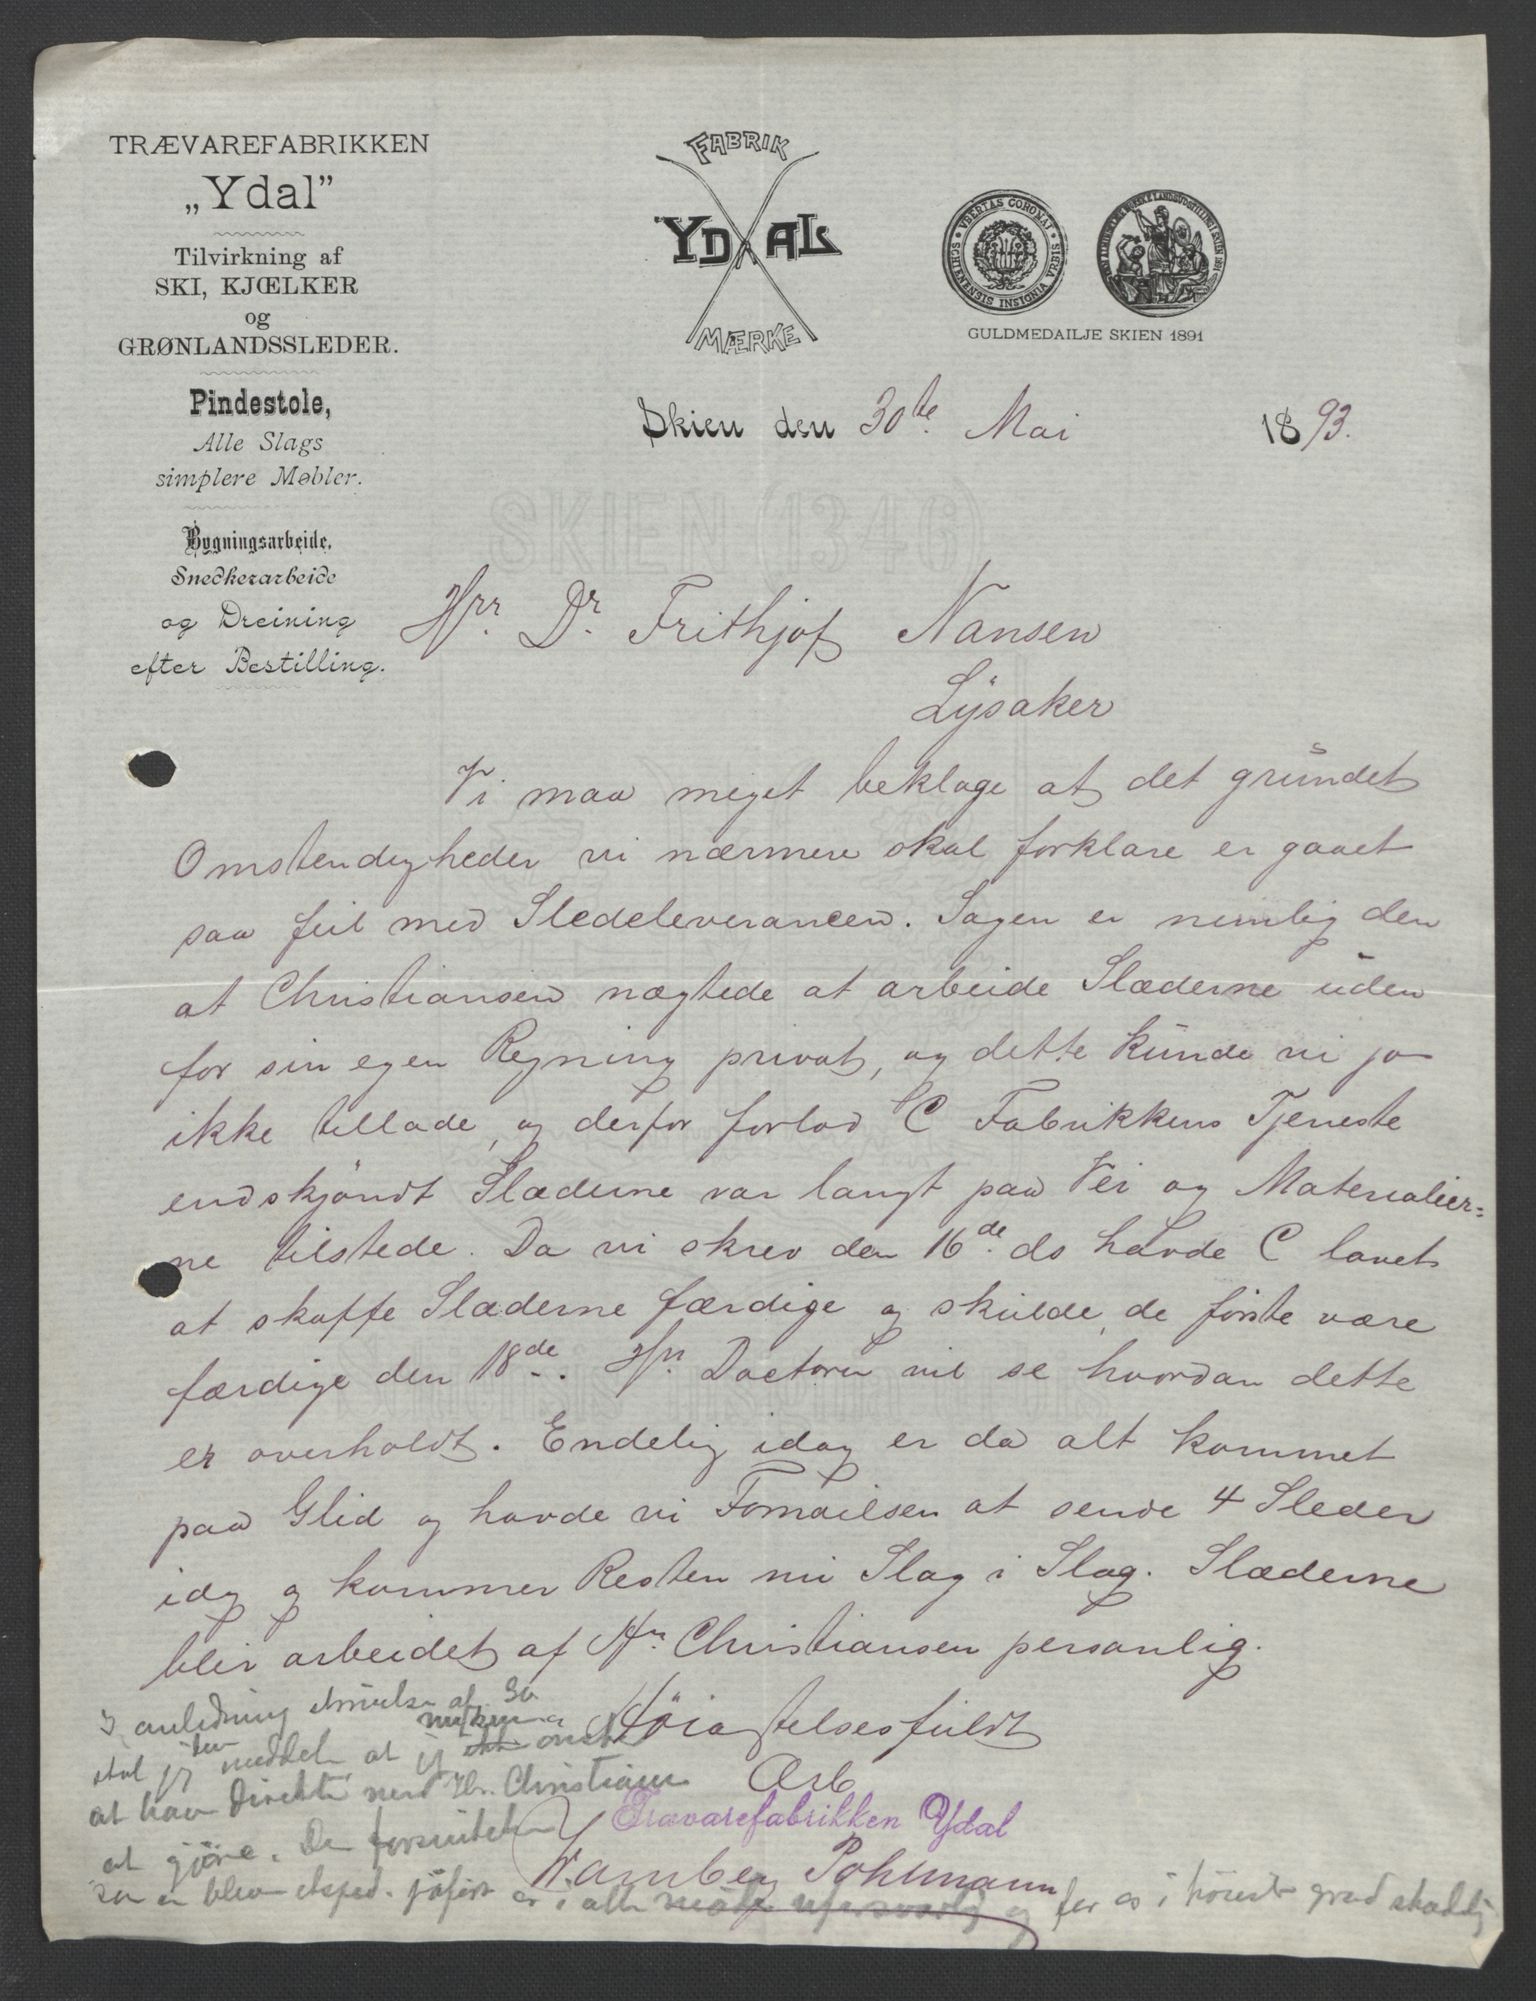 TRÆVAREFABRIKKEN
„Ydal”
Tilvirkning af
SKI, KJŒLKER
og
GRØNLANDSSLEDER.
Pindestole,
Alle Slags
simplere Møbler.
Bygningsarbeide,
Snedkerarbeide
og Dreining
efter Bestilling.
FABRIK
YDAL
MÆRKE
UBERTAS CORONAT SIBRA SCHENENSIS INSIGNIA
GULDMEDAILJE SKIEN 1891
Skien den 30te Mai 1893.
SKIEN (1346)
Hrr. Dr. Frithjof Nansen
Lysaker
Vi maa meget beklage at det grundet
Omstendigheder vi nærmere skal forklare er gaaet
saa feil med Sledeleverancen. Sagen er nemlig den
at Christiansen nægtede at arbeide Slæderne uden
for sin egen Regning privat, og dette kunde vi jo
ikke tillade, og derfor forlod C Fabrikkens Tjeneste
endskjöndt Slæderne var langt paa Vei og Materialier=
ne tilstede. Da vi skrev den 16de ds havde C lovet
at skaffe Slæderne færdige og skulde de förste være
færdige den 18de. Hrr. Doctoren vil se hvordan dette
er overholdt. Endelig idag er da alt kommet
paa Glid og havde vi Fornöielsen at sende 4 Sleder
idag og kommer Resten nu Slag i Slag. Slæderne
blir arbeidet af Hr. Christiansen personlig.
Höiagtelsesfuldt
Arb.
Trævarefabrikken Ydal
Wamberg Pohlmann
I anledning skrivelse af 30
skal jeg meddele at jeg önsker
at have direkte med Hr. Christiansen
at gjöre. Den forsinkelse
som er bleven i alle måde uforsvarlig og for os i höieste grad skadelig